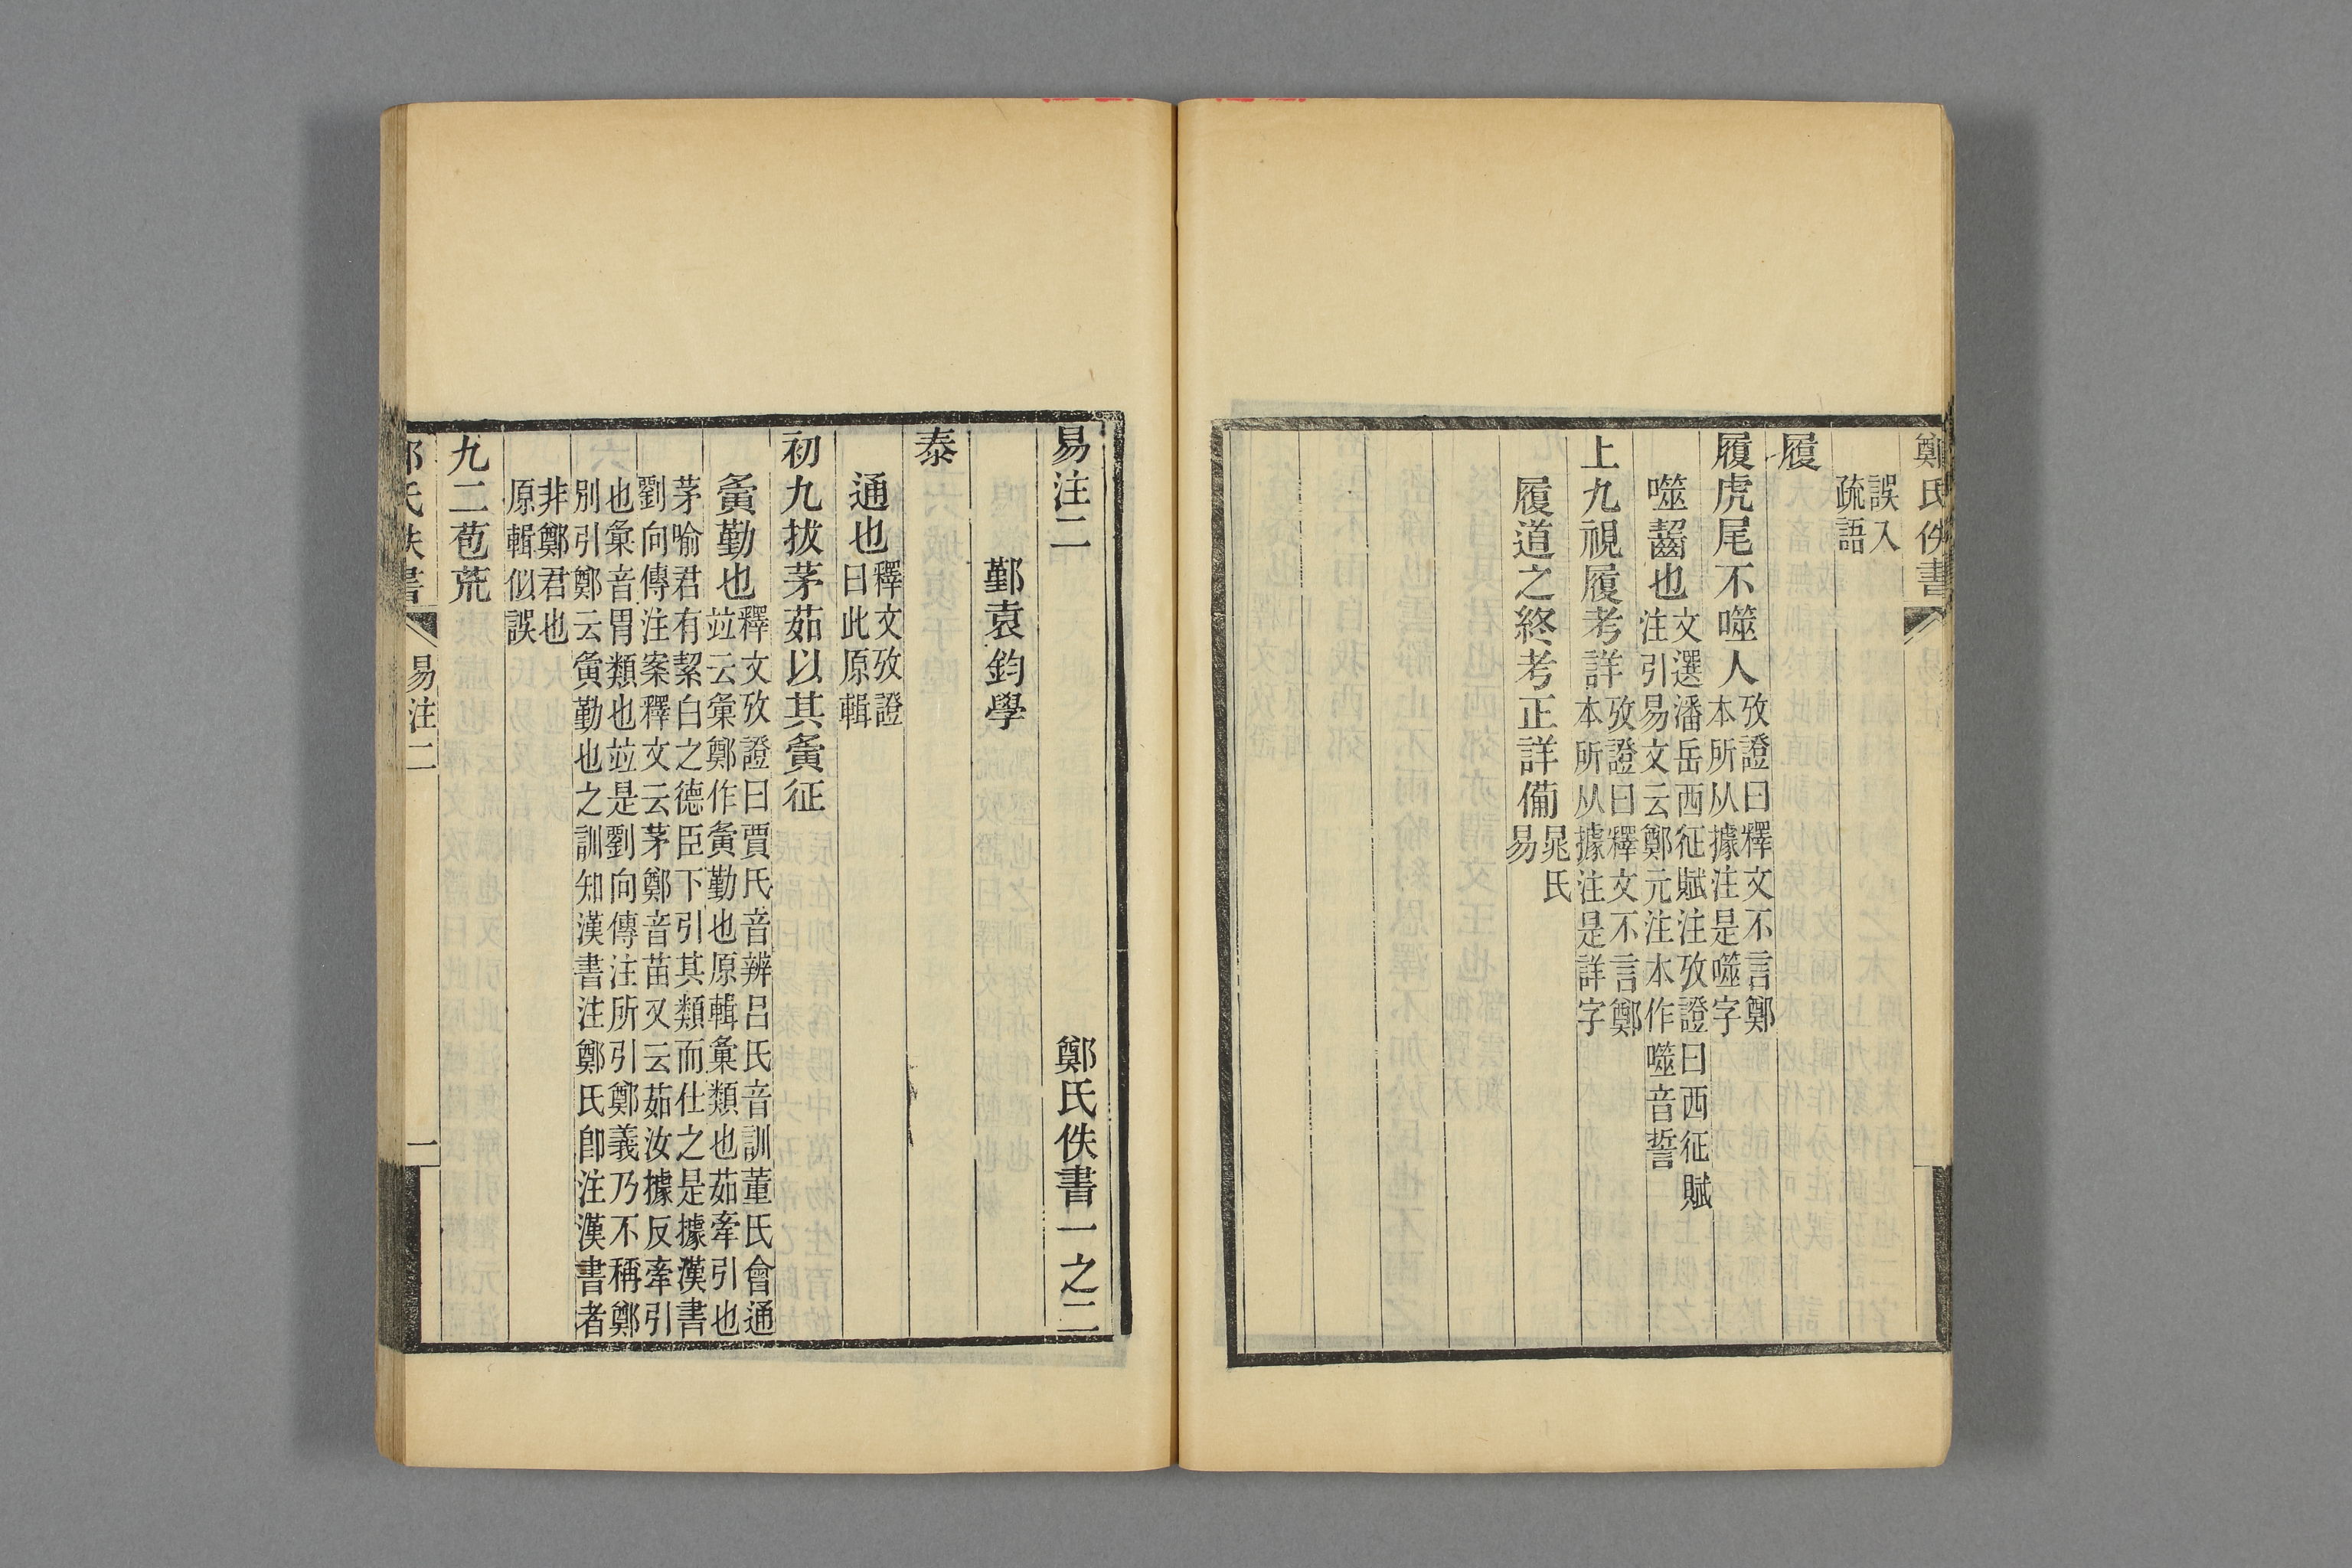 鄭氏佚書
誤入
疏語
履
履虎尾不噬人攷證曰釋文不言鄭
本所从據注是噬字
噬齧也文選潘岳西征賦注攷證曰西征賦
注引易文云鄭元注本作噬音誓
上九視履考詳攷證曰釋文不言鄭
本所从據注是詳字
履道之終考正詳備晁氏
易
易注二 鄭氏佚書一之二
鄞袁鈞學
泰
通也釋文攷證
曰此原輯
初九拔茅茹以其夤征
夤勤也釋文攷證曰賈氏音辨呂氏音訓董氏會通
竝云彙鄭作夤勤也原輯彙類也茹牽引也
茅喻君有絜白之德臣下引其類而仕之是據漢書
劉向傳注案釋文云茅鄭音苗又云茹汝據反牽引
也彙音胃類也竝是劉向傳注所引鄭義乃不稱鄭
別引鄭云夤勤也之訓知漢書注鄭氏卽注漢書者
非鄭君也
原輯似誤
九二苞荒
易注二
一